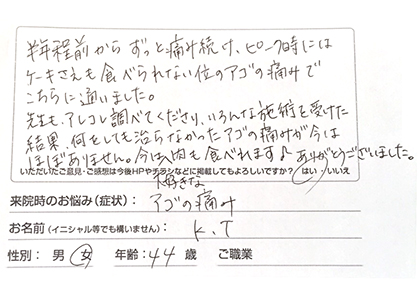 半年程前からずっと痛み続け、ピーク時には
ケーキさえも食べられない位のアゴの痛みで
こちらに通いました。
先生もアレコレ調べてくださり、いろんな施術を受けた
結果、何をしても治らなかったアゴの痛みが今は
ほぼありません。今は大好きな肉も食べれます♪ ありがとうございました。
いただいたご意見・ご感想は今後HPやチラシなどに掲載してもよろしいですか? はい・いいえ
来院時のお悩み(症状): アゴの痛み
お名前(イニシャル等でも構いません): K.T
性別: 男 女 年齢: 44 歳 ご職業